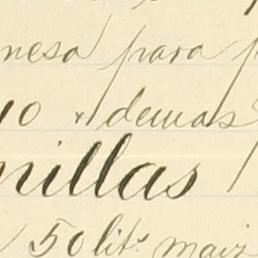 nesa para p
10 y demas
nillas
50 lits maiz